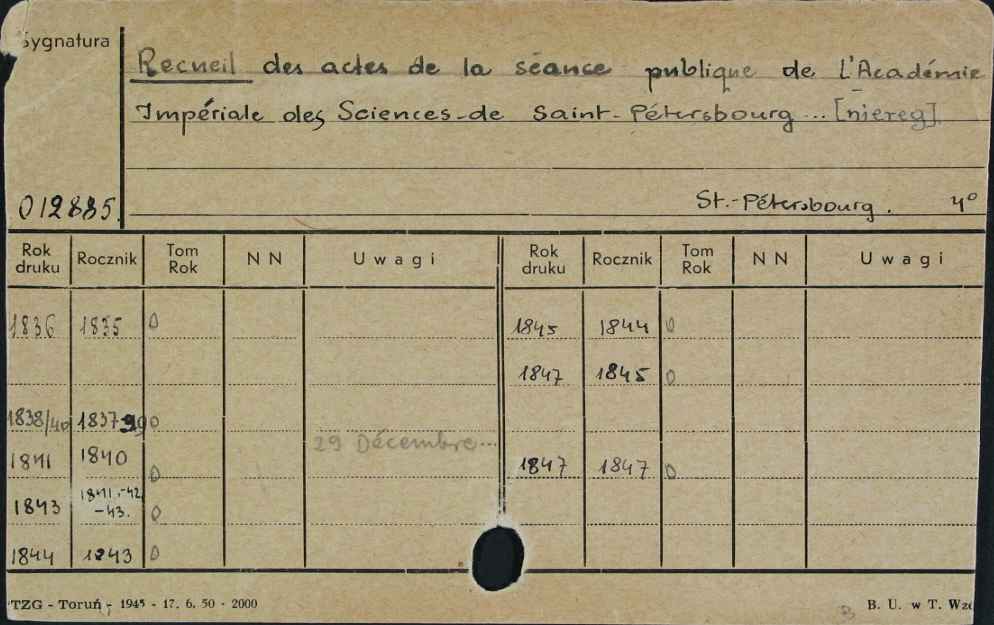 Sygnatura
Recueil des actes de la séance publique de L'Académie
Impériale des Sciences de Saint-Pétersbourg ... [niereg]
012885.
St.-Pétersbourg. 4°
Rok druku Rocznik Tom Rok NN Uwagi Rok druku Rocznik Tom Rok NN Uwagi
1836 1835 0 1845 1844 0
1847 1845 0
1838/40 1837-39 0
29 Décembre...
1841 1840 0 1847 1847 0
1843 1841.-42 -43. 0
1844 1843 0
TZG - Toruń - 1945 - 17. 6. 50 - 2000 B. U. w T. Wzó